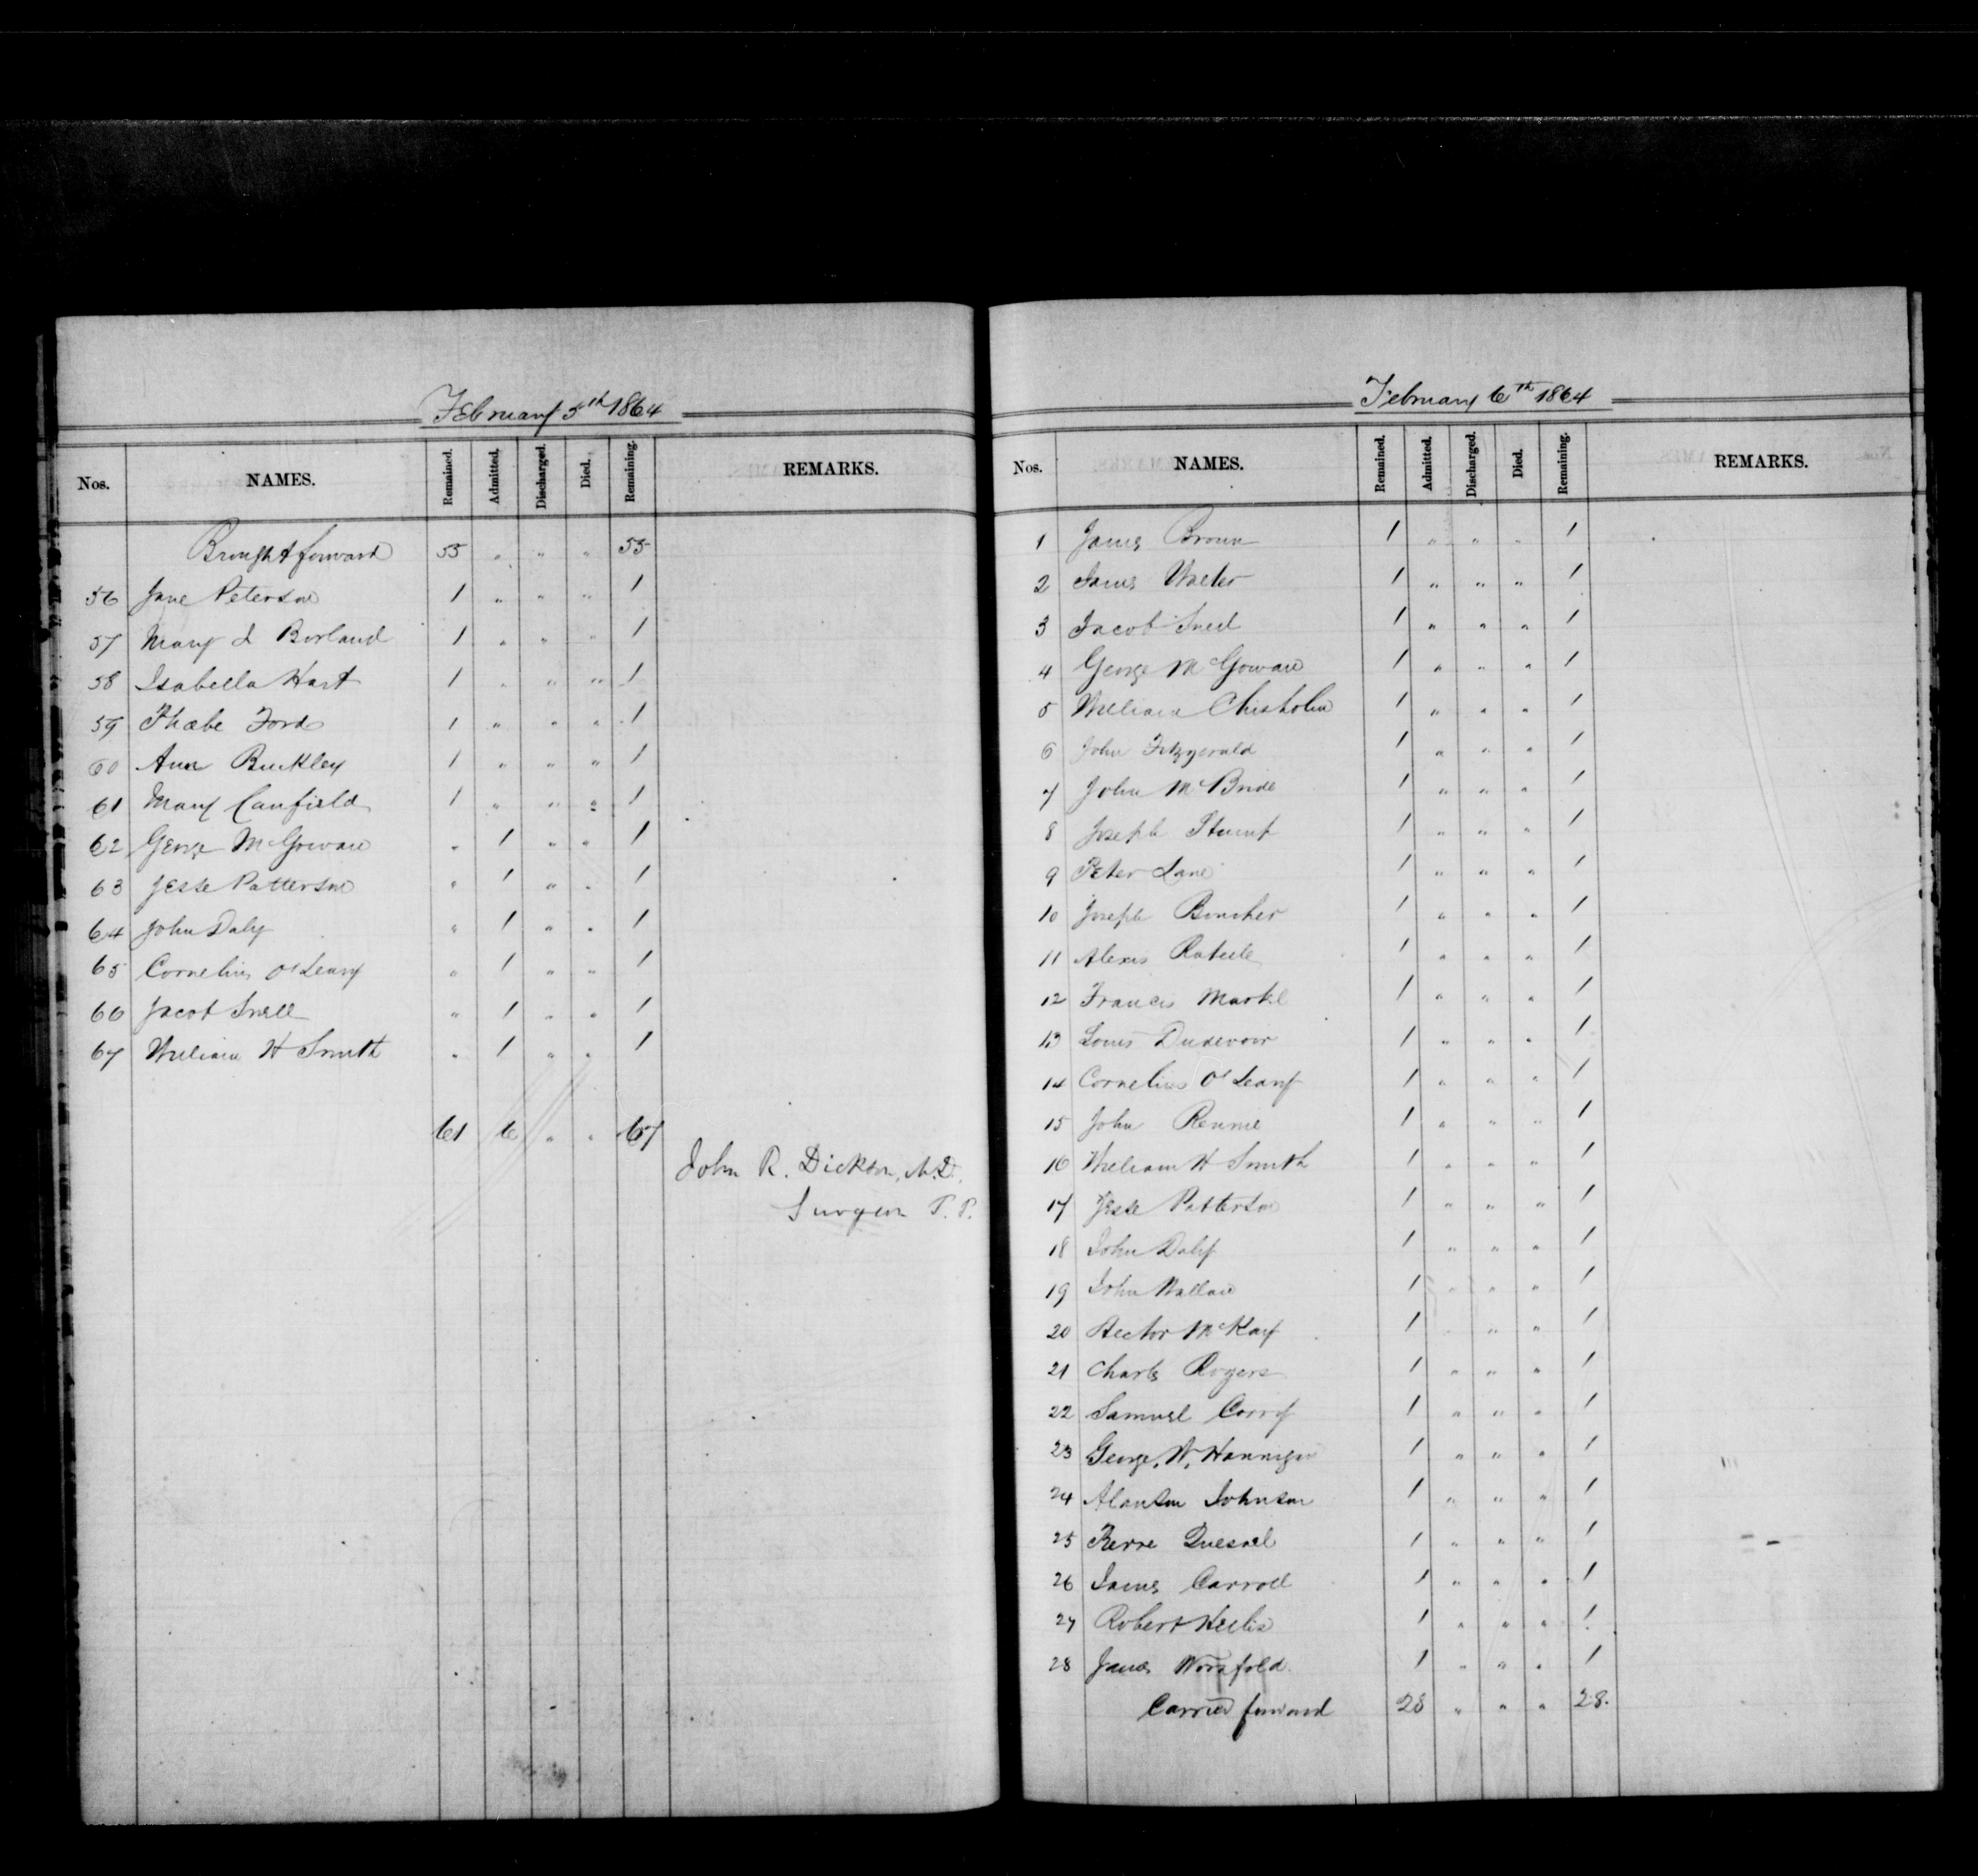 February 5th 1864
Nos. NAMES. Remained. Admitted. Discharged. Died. Remaining. REMARKS.
Brought forward 55 " " " 55
56 Jane Peterson 1 " " " 1
57 Mary J Borland 1 " " " 1
58 Isabella Hart 1 " " " 1
59 Phæbe Ford 1 " " " 1
60 Ann Buckley 1 " " " 1
61 Mary Canfield 1 " " " 1
62 George McGowan " 1 " " 1
63 Jesse Patterson " 1 " " 1
64 John Daly " 1 " " 1
65 Cornelius O'Leary " 1 " " 1
66 Jacob Snell " 1 " " 1
67 William H Smith " 1 " " 1
61 6 " " 67
John R. Dickson, M.D.
Surgeon P. P.
February 6th 1864
Nos. NAMES. Remained. Admitted. Discharged. Died. Remaining. REMARKS.
1 James Brown 1 " " " 1
2 James Walter 1 " " " 1
3 Jacob Snell 1 " " " 1
4 George McGowan 1 " " " 1
5 William Chisholm 1 " " " 1
6 John Fitzgerald 1 " " " 1
7 John McBride 1 " " " 1
8 Joseph Stump 1 " " " 1
9 Peter Lane 1 " " " 1
10 Joseph Boucher 1 " " " 1
11 Alexis 1 " " " 1
12 Francis Markl 1 " " " 1
13 Louis Dudevoir 1 " " " 1
14 Cornelius O'Leary 1 " " " 1
15 John Rennie 1 " " " 1
16 William H Smith 1 " " " 1
17 Jesse Patterson 1 " " " 1
18 John Daly 1 " " " 1
19 John Wallace 1 " " " 1
20 Hector McKay 1 " " " 1
21 Charles Rogers 1 " " " 1
22 Samuel Corry 1 " " " 1
23 George. W. Hannigan 1 " " " 1
24 Alanson Johnson 1 " " " 1
25 Pierre Quesnel 1 " " " 1
26 James Carroll 1 " " " 1
27 Robert 1 " " " 1
28 James Worsfold. 1 " " " 1
Carried forward 28 " " " 28.